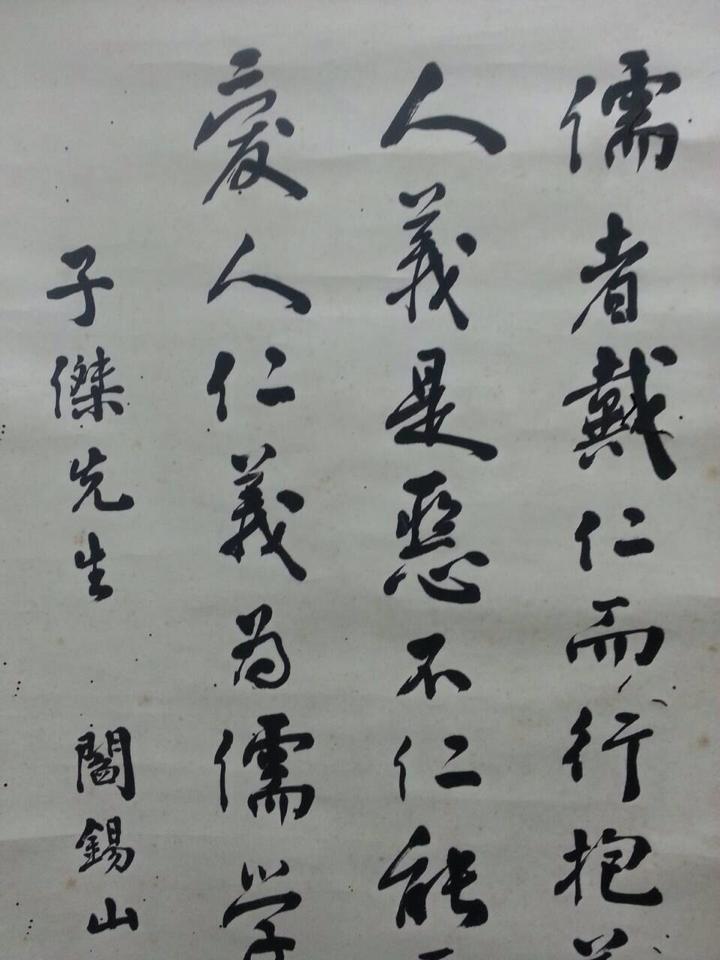 儒者戴仁而行抱義
人義是惡不仁能
愛人仁義為儒学
子傑先生 閻錫山